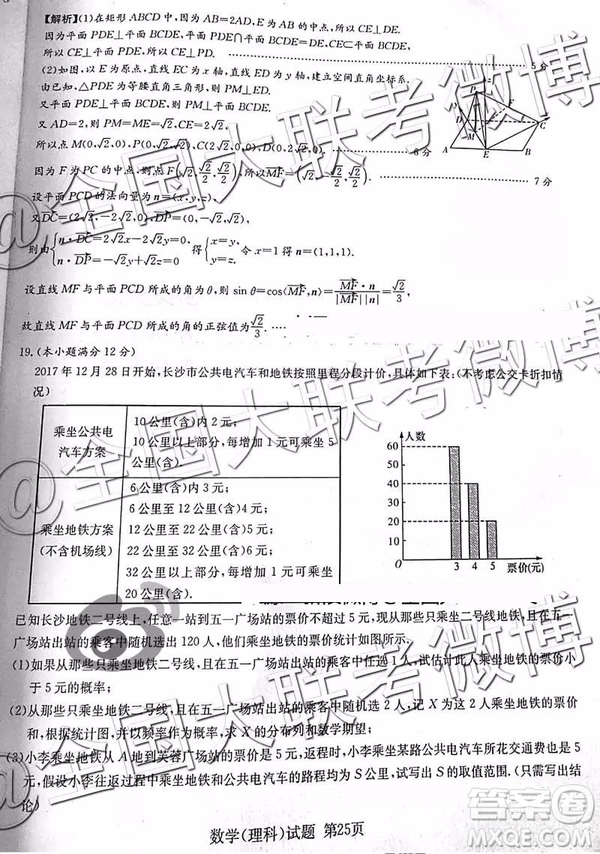 【解析】(1)在矩形ABCD中,因为AB=2AD,E为AB的中点,所以CE⊥DE.
因为平面PDE⊥平面BCDE,平面PDE∩平面BCDE=DE,CE⊂平面BCDE,
所以CE⊥平面PDE,所以CE⊥PD. 5分
(2)如图,以E为原点,直线EC为x轴,直线ED为y轴,建立空间直角坐标系.
由已知,△PDE为等腰直角三角形,所以PM⊥ED.
又平面PDE⊥平面BCDE,所以PM⊥平面BCDE.
又AD=2,则PM=ME=√2,CE=2√2.
所以点M(0,√2,0),P(0,√2,√2),C(2√2,0,0),D(0,2√2,0). 6分
因为F为PC的中点,则点F(√2,√2/2,√2/2),所以MF=(√2,-√2/2,√2/2). 7分
设平面PCD的法向量为n=(x,y,z),
又DC=(2√2,-2√2,0),DP=(0,-√2,√2),
则由{n·DC=2√2x-2√2y=0 n·DP=-√2y+√2z=0,得{x=y, y=z.令x=1得n=(1,1,1).
设直线MF与平面PCD所成的角为θ,则sinθ=cos⟨MF,n⟩=MF·n/|MF||n|=√2/3,
故直线MF与平面PCD所成的角的正弦值为√2/3.
19.(本小题满分12分)
2017年12月28日开始,长沙市公共电汽车和地铁按照里程分段计价,具体如下表:(不考虑公交卡折扣情
况)
乘坐公共电
汽车方案
10公里(含)内2元;
10公里以上部分,每增加1元可乘坐5
公里(含).
乘坐地铁方案
(不含机场线)
6公里(含)内3元;
6公里至12公里(含)4元;
12公里至22公里(含)5元;
22公里至32公里(含)6元;
32公里以上部分,每增加1元可乘坐
20公里(含).
人数
60
50
40
30
20
10
0
3 4 5 票价(元)
已知长沙地铁二号线上,任意一站到五一广场站的票价不超过5元,现从那些只乘坐二号线地铁,且在五一
广场站出站的乘客中随机选出120人,他们乘坐地铁的票价统计如图所示.
(1)如果从那些只乘坐地铁二号线,且在五一广场站出站的乘客中任选1人,试估计此人乘坐地铁的票价小
于5元的概率;
(2)从那些只乘坐地铁二号线,且在五一广场站出站的乘客中随机选2人,记X为这2人乘坐地铁的票价
和,根据统计图,并以频率作为概率,求X的分布列和数学期望;
(3)小李乘坐地铁从A地到芙蓉广场站的票价是5元,返程时,小李乘坐某路公共电汽车所花交通费也是5
元,假设小李往返过程中乘坐地铁和公共电汽车的路程均为S公里,试写出S的取值范围.(只需写出结
论)
数学(理科)试题 第25页
@全国大联考微博
@全国大联考微博
答案圈
MXQE.COM